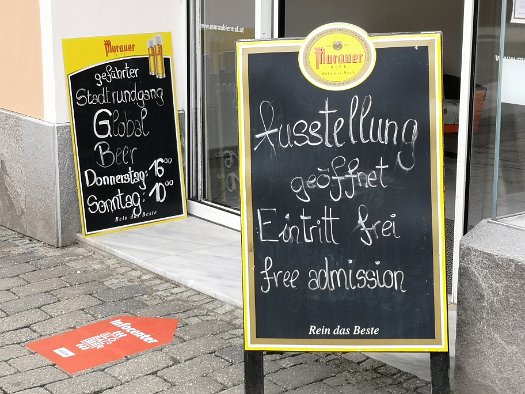 Murauer
geführter
Stadtrundgang
Global
Beer
Donnerstag: 16⁰⁰
Sonntag: 10⁰⁰
Rein das Beste
Murauer
BIER
Rein das Beste
Ausstellung
geöffnet
Eintritt frei
free admission
Rein das Beste
Infocenter